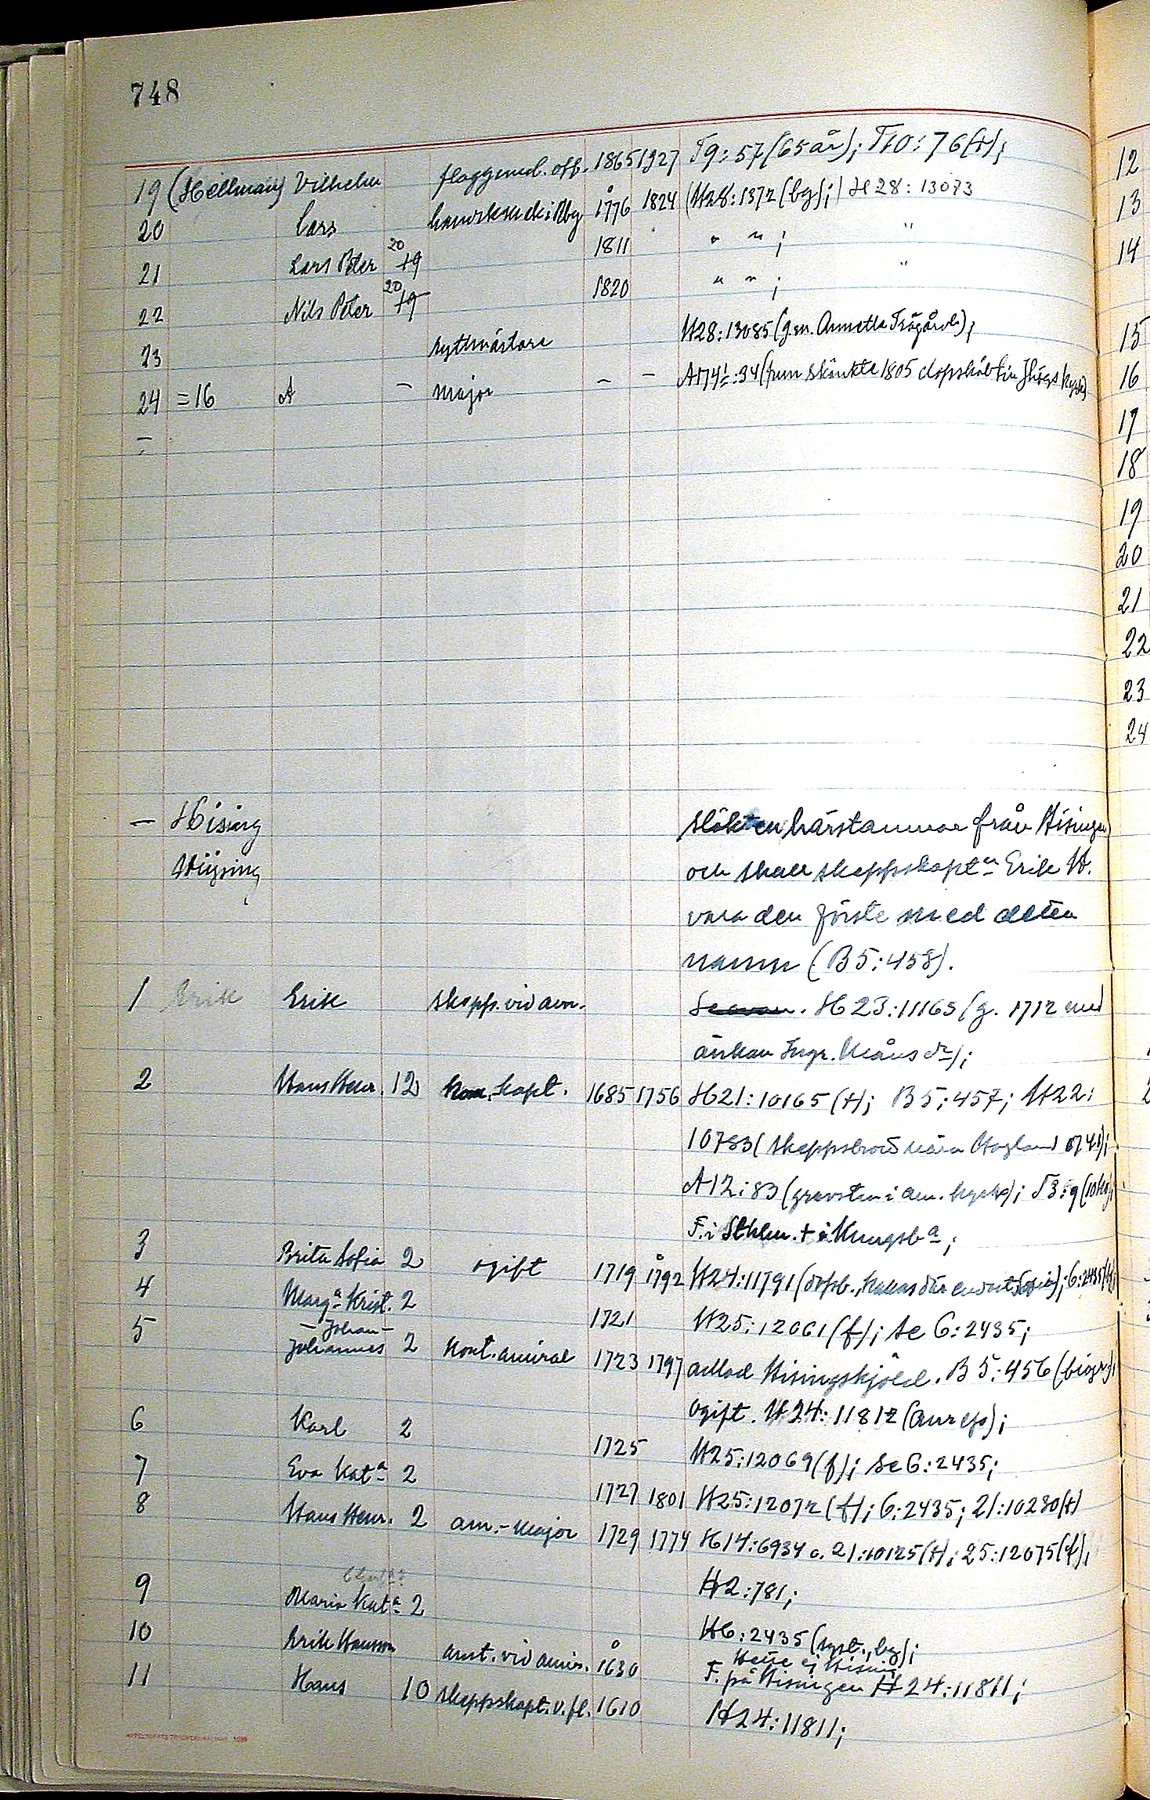 748
19 (Hellman) Vilhelm flaggund. off. 1865 1927 T9:57 (65 år); T10:76 (†);
20 Lars hantverksidk. i Nbg 1776 1824 (H28:1372 (bg);) H28:13073
21 Lars Peter 20 19 1811 " " ; "
22 Nils Peter 20 19 1820 " " ; "
23 ryttmästare H28:13085 (gm. Annetta Trägårdh);
24 =16 A – major – – A174:34 (frun skänkte 1805
–
– Hising släkten härstammar från Hisingen
Hüsing och skall skeppskaptn Erik H.
vara den förste med detta
namn (B5:458).
1 Erik Erik skepps. vid am. H23:11165 (g. 1712 med
änkan Ingr. Månsdr);
2 Hans Henr. 12 kom. kapt. 1685 1756 H21:10165 (†); B5:457; H22:
10783 (skeppsbrott nära Hogland 1741);
A12:83 (gravsten i am. kyrka); T3:9
F. i Sthlm. † i Kungsba;
3 Brita Sofia 2 ogift 1719 1792 H24:11791 G:2435
4 Marga Krist. 2 1721 H25:12061 (f); se G:2435;
5 –Johan–
Johannes 2 kont. amiral 1723 1797 adlad Hisingskjöld. B5:456 (biogr);
ogift. H24:11812
6 Karl 2 1725 H25:12069 (f); se G:2435;
7 Eva Kata 2 1727 1801 H25:12072 (f); G:2435; 21:10280 (†)
8 Hans Henr. 2 am.-major 1729 1774 H14:6934 o. 21:10125 (†); 25:12075 (f);
H2:781;
9 Maria Kata 2 H6:2435
10 Erik Hansson amt. vid amir. 1630 Hette ej Hising
F. på Hisingen H24:11811;
11 Hans 10 skeppskapt. v. fl. 1610 H24:11811;
12
13
14
15
16
17
18
19
20
21
22
23
24